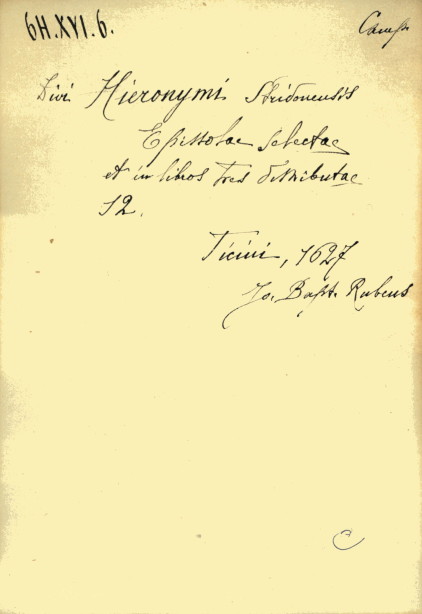 6H.XVI.6.
Camp.
Divi Hieronymi Stridonensis
Epistolae selectae
et in libros tres distributae
12.
Ticini, 1627
Jo. Bapt. Rubeus